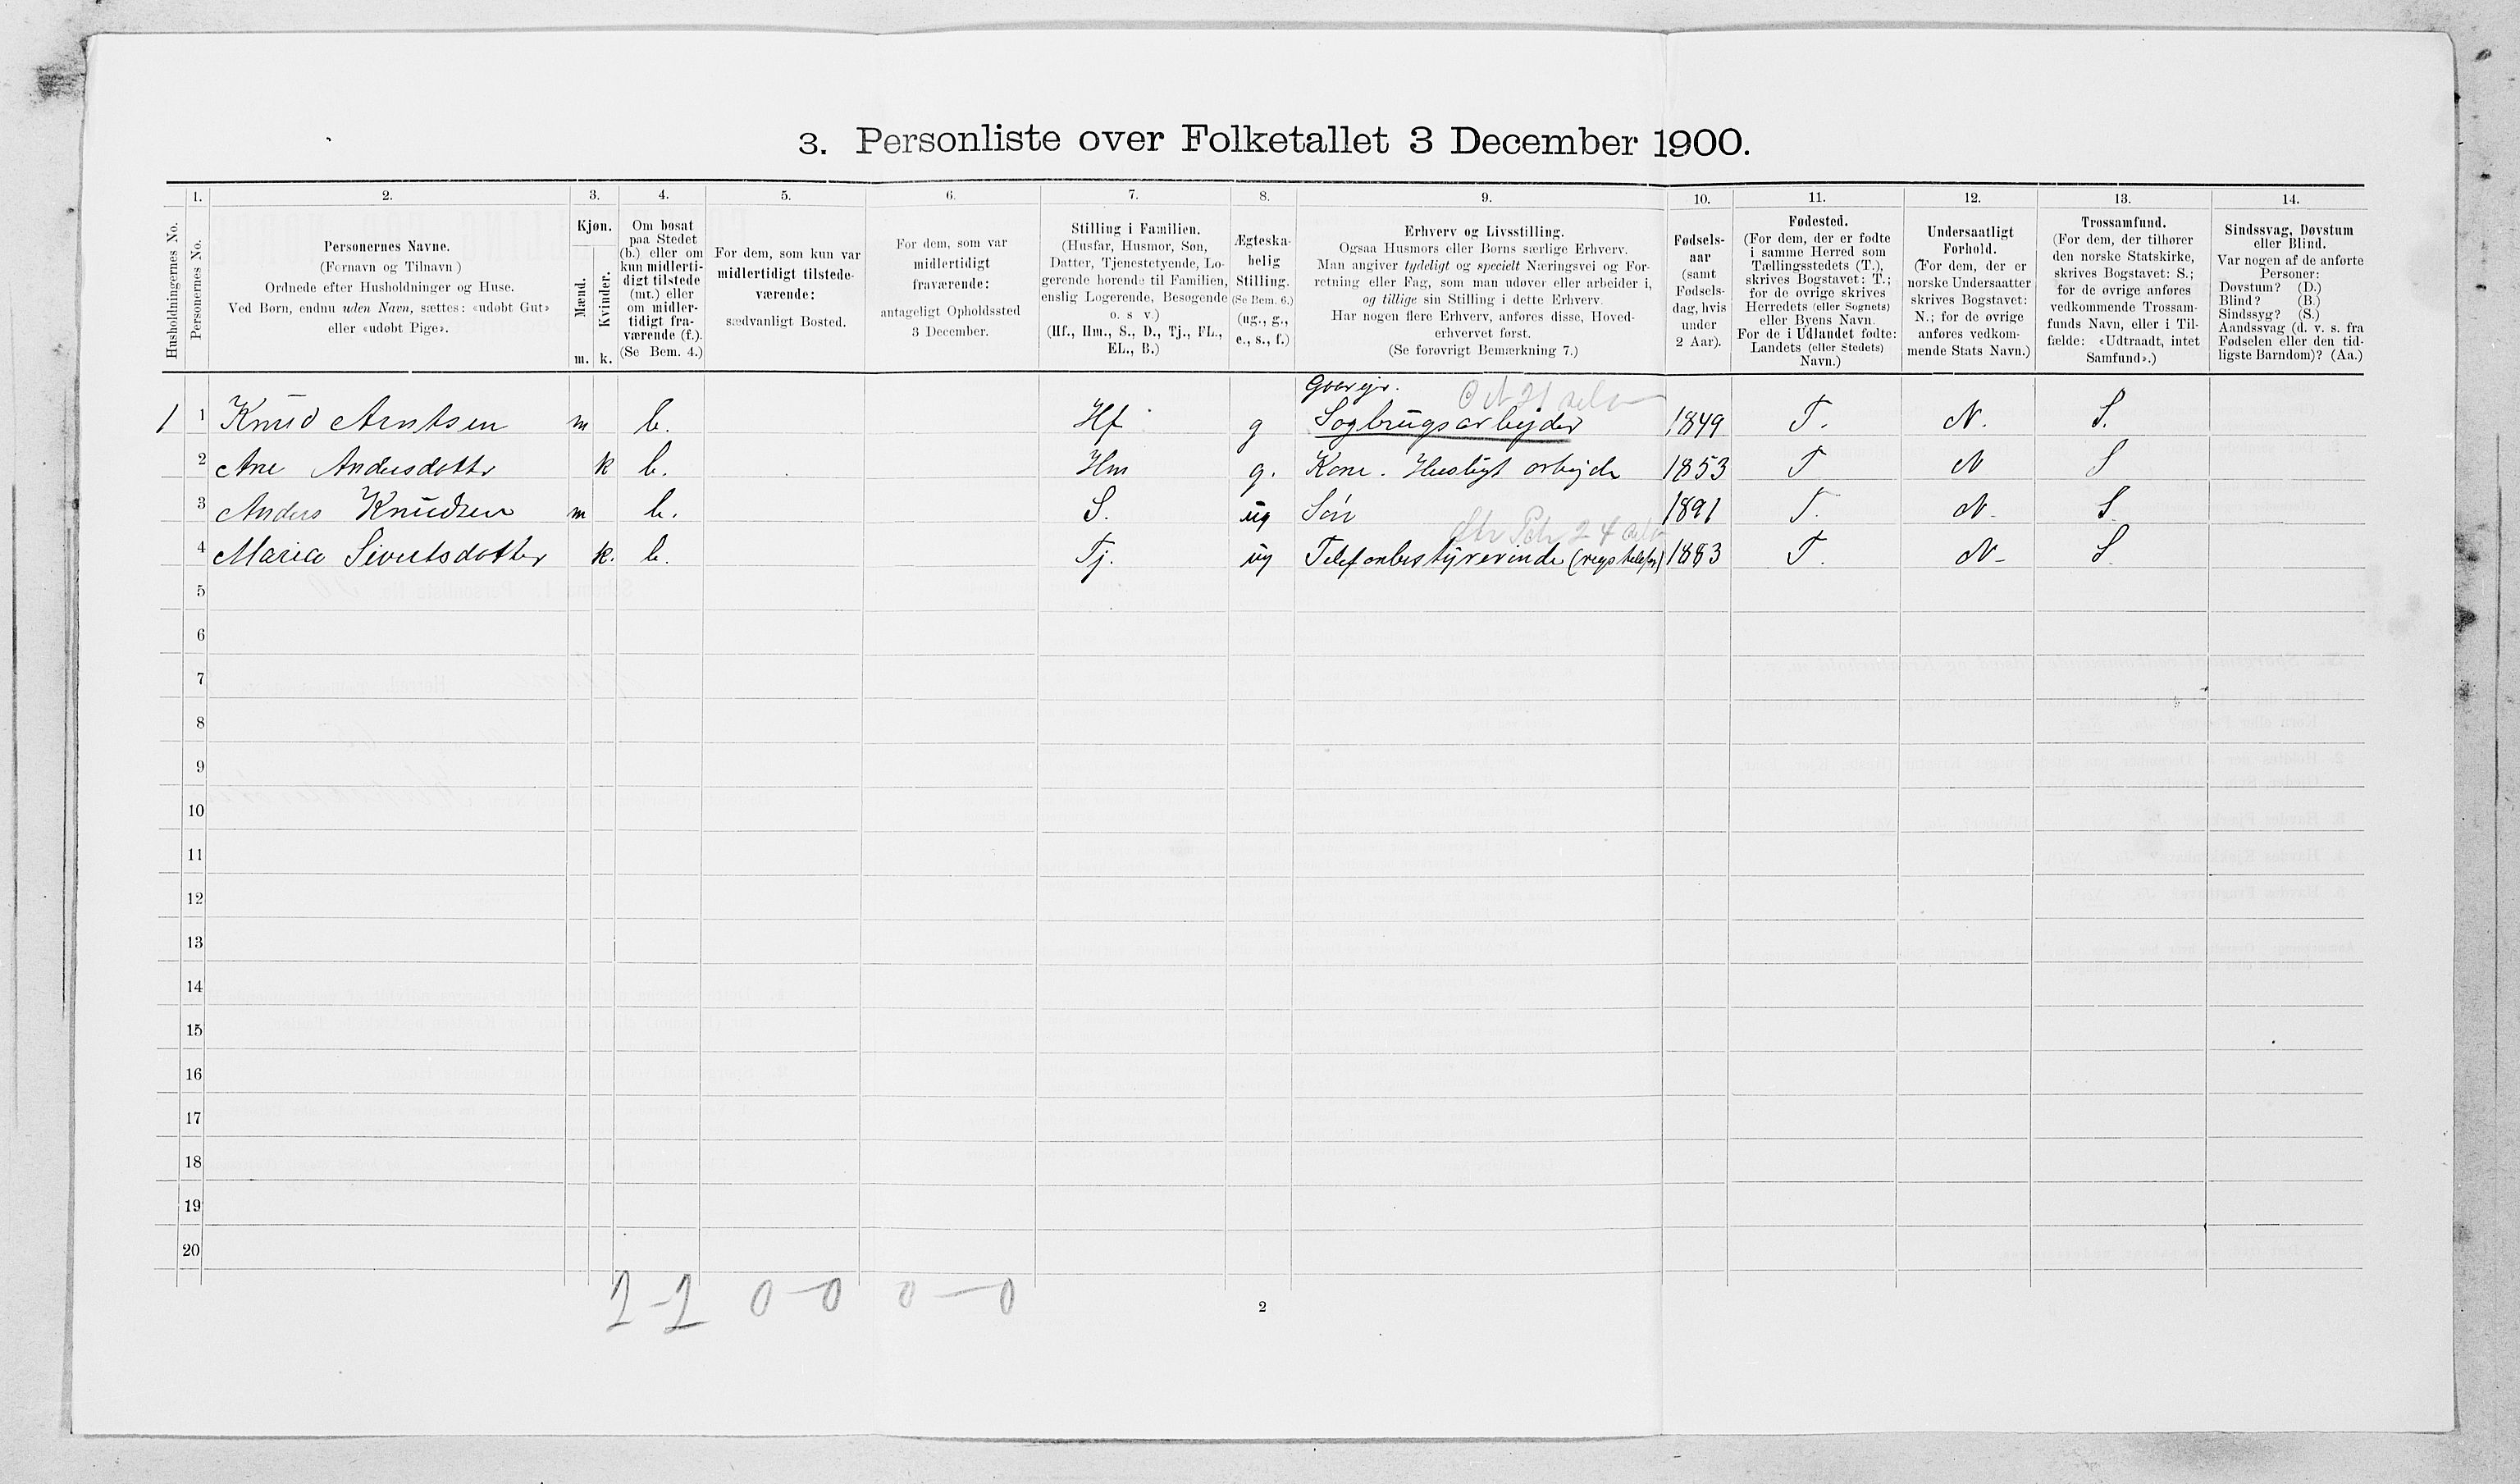 3. Personliste over Folketallet 3 December 1900.
Husholdningernes No.
1.
Personernes No.
2.
Personernes Navne.
(Fornavn og Tilnavn)
Ordnede efter Husholdninger og Huse.
Ved Børn, endnu uden Navn, sættes: «udøbt Gut»
eller «udøbt Pige».
3.
Kjøn.
Mænd.
Kvinder.
m. k.
4.
Om bosat
paa Stedet
(b.) eller om
kun midlerti-
digt tilstede
(mt.) eller
om midler-
tidigt fra-
værende (f.).
(Se Bem. 4.)
5.
For dem, som kun var
midlertidigt tilstede-
værende:
sædvanligt Bosted.
6.
For dem, som var
midlertidigt
fraværende:
antageligt Opholdssted
3 December.
7.
Stilling i Familien.
(Husfar, Husmor, Søn,
Datter, Tjenestetyende, Lo-
gerende hørende til Familien,
enslig Logerende, Besøgende
o. s v.)
(Hf., Hm., S., D., Tj., FL.,
EL., B.)
8.
Ægteska-
belig
Stilling.
(Se Bem. 6.)
(ug., g.,
e., s., f.)
9.
Erhverv og Livsstilling.
Ogsaa Husmors eller Børns særlige Erhverv.
Man angiver tydeligt og specielt Næringsvei og For-
retning eller Fag, som man udøver eller arbeider i,
og tillige sin Stilling i dette Erhverv.
Har nogen flere Erhverv, anføres disse, Hoved-
erhvervet først.
(Se forøvrigt Bemærkning 7.)
10.
Fødsels-
aar
(samt
Fødsels-
dag, hvis
under
2 Aar).
11.
Fødested.
(For dem, der er fødte
i samme Herred som
Tællingsstedets (T.),
skrives Bogstavet: T.;
for de øvrige skrives
Herredets (eller Sognets)
eller Byens Navn.
For de i Udlandet fødte:
Landets (eller Stedets)
Navn.)
12.
Undersaatligt
Forhold.
(For dem, der er
norske Undersaatter
skrives Bogstavet:
N.; for de øvrige
anføres vedkom-
mende Stats Navn.)
13.
Trossamfund.
(For dem, der tilhører
den norske Statskirke,
skrives Bogstavet: S.;
for de øvrige anføres
vedkommende Trossam-
funds Navn, eller i Til-
fælde: «Udtraadt, intet
Samfund».)
14.
Sindssvag, Døvstum
eller Blind.
Var nogen af de anførte
Personer:
Døvstum? (D.)
Blind? (B.)
Sindssyg? (S.)
Aandssvag (d. v. s. fra
Fødselen eller den tid-
ligste Barndom)? (Aa.)
Gaarejr.
1 1 Knud Arntsen m b. Hf g Sagbrugsarbejder 1849 T. N. S.
2 Ane Andersdottr k b. Hm g. Kone. Husligt arbejde 1853 T N S
3 Anders Knudsen m b. S. ug Søn 1891 T. N. S
4 Maria Sivertsdotter k. b. Tj. ug Telefonbestyrerinde (rigstelefon) 1883 T. N. S.
5
6
7
8
9
10
11
12
13
14
15
16
17
18
19
20
2-2 0-0 0-0
2